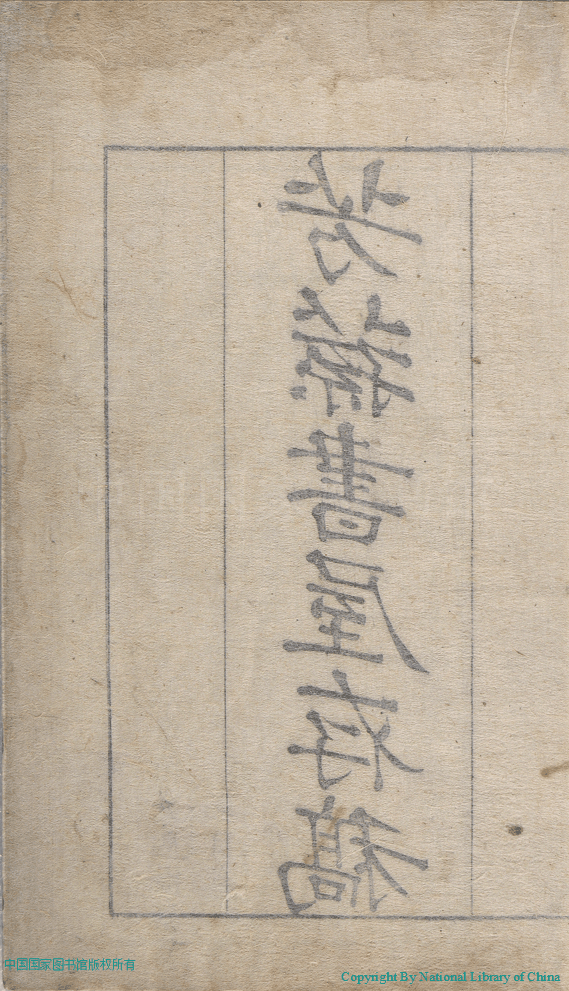 書屋存稿
中国国家图书馆版权所有
Copyright By National Library of China